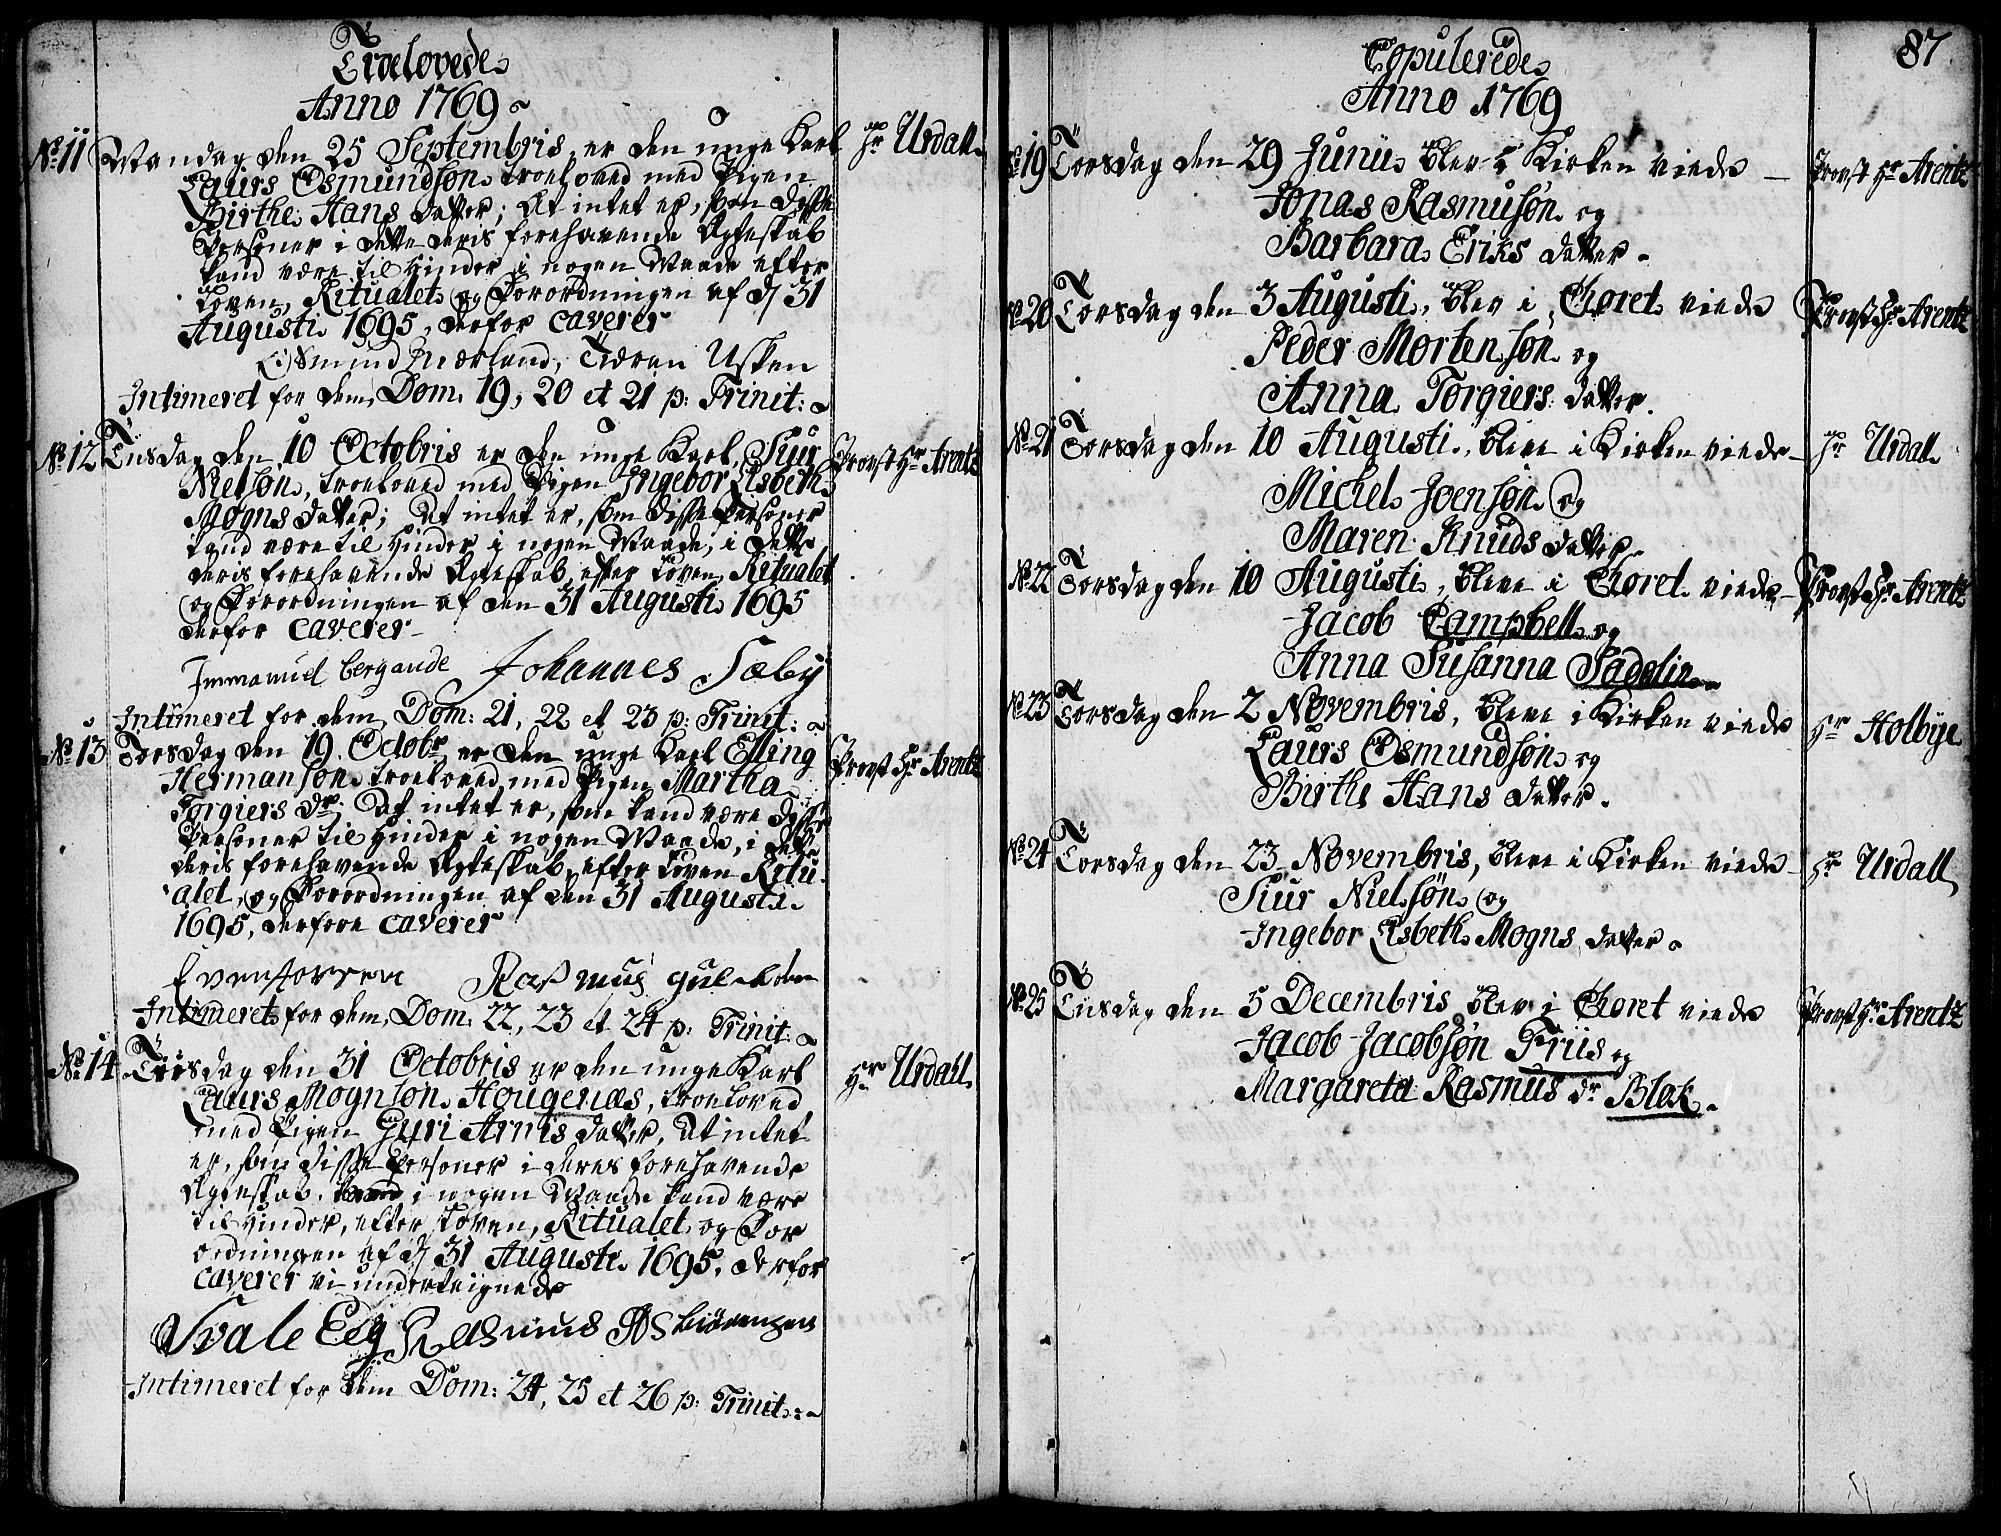 Troelovede
Anno 1769
No 11 Mandag den 25 Septembris, er den unge Karl Hr Urdall
Laurs Osmundsøn troeloved med Pigen
Birthe Hans datter; At intet er, som disse
Personer i dette deris forehavende Ægteskab
kand være til Hinder i nogen Maade efter
Loven, Ritualet og Forordningen af d 31
Augusti 1695, derfor caverer
Osmund Nærland, Tieran Usken
Intimeret for dem, Dom. 19, 20 et 21 p: Trinit:
No 12 Tiisdag den 10 Octobris er den unge Karl, Siur Provst Hr Arentz
Nielsøn, troeloved med Pigen Ingebor Lisbeth
Mogns datter; At intet er, som disse Personer
kand være til Hinder i nogen Maade, i dette
deris forehavende Ægteskab, efter Loven, Ritualet
og Forordningen af den 31 Augusti 1695
derfor caverer
Immanuel bergande Johannes Sæby
Intimeret for dem, Dom: 21, 22 et 23 p: Trinit:
No 13 Torsdag den 19 Octobr er den unge Karl Elling Provst Hr Arentz
Hermansøn troeloved med Pigen Martha
Torgiers dr. At intet er, som kand være disse
Personer til Hinder i nogen Maade, i dette
deris forehavende Ægteskab, efter Loven Ritu
alet, og Forordningen af den 31 Augusti
1695, derfore caverer
Evensforsen Rasmus
Intimeret for dem, Dom: 22, 23 et 24 p: Trinit:
No 14 Tiisdag den 31 Octobris er den unge Karl Hr Urdall
Laurs Mognsøn Hougenæs, troeloved
med Pigen Guri Arnis datter, At intet
er, som disse Personer i deres forehavende
Ægteskab, i nogen Maade kand være
til Hinder, efter Loven, Ritualet og For
ordningen af d 31 Augusti 1695, derfor
caverer vi underteignede
Svale Eeg Rasmus Asbiörensen
Intimeret for dem Dom: 24, 25 et 26 p: Trinit:
87
Copulerede
Anno 1769
No 19 Torsdag den 29 Junii blev i Kirken viede Provst Hr Arentz
Jonas Rasmusøn og
Barbara Eriks datter
No 20 Torsdag den 3 Augusti, blev i Choret viede Provst Hr Arentz
Peder Mortensøn og
Anna Torgiers datter.
No 21 Torsdag den 10 Augusti, bleve i Kirken viede Hr Urdall
Michel Joensøn og
Maren Knuds datter
No 22 Torsdag den 10 Augusti, bleve i Choret viede Provst Hr Arentz
Jacob Campbell og
Anna Susanna Sadolin
No 23 Torsdag den 2 Novembris, bleve i Kirken viede Hr Holbye
Laurs Osmundsøn og
Birthe Hans datter.
No 24 Torsdag den 23 Novembris, bleve i Kirken viede Hr Urdall
Siur Nielsøn og
Ingebor Lisbeth Mogns datter
No 25 Tiisdag den 5 Decembris blev i Choret viede Provst Hr Arentz
Jacob Jacobsøn Friis og
Margareta Rasmus dr Blok